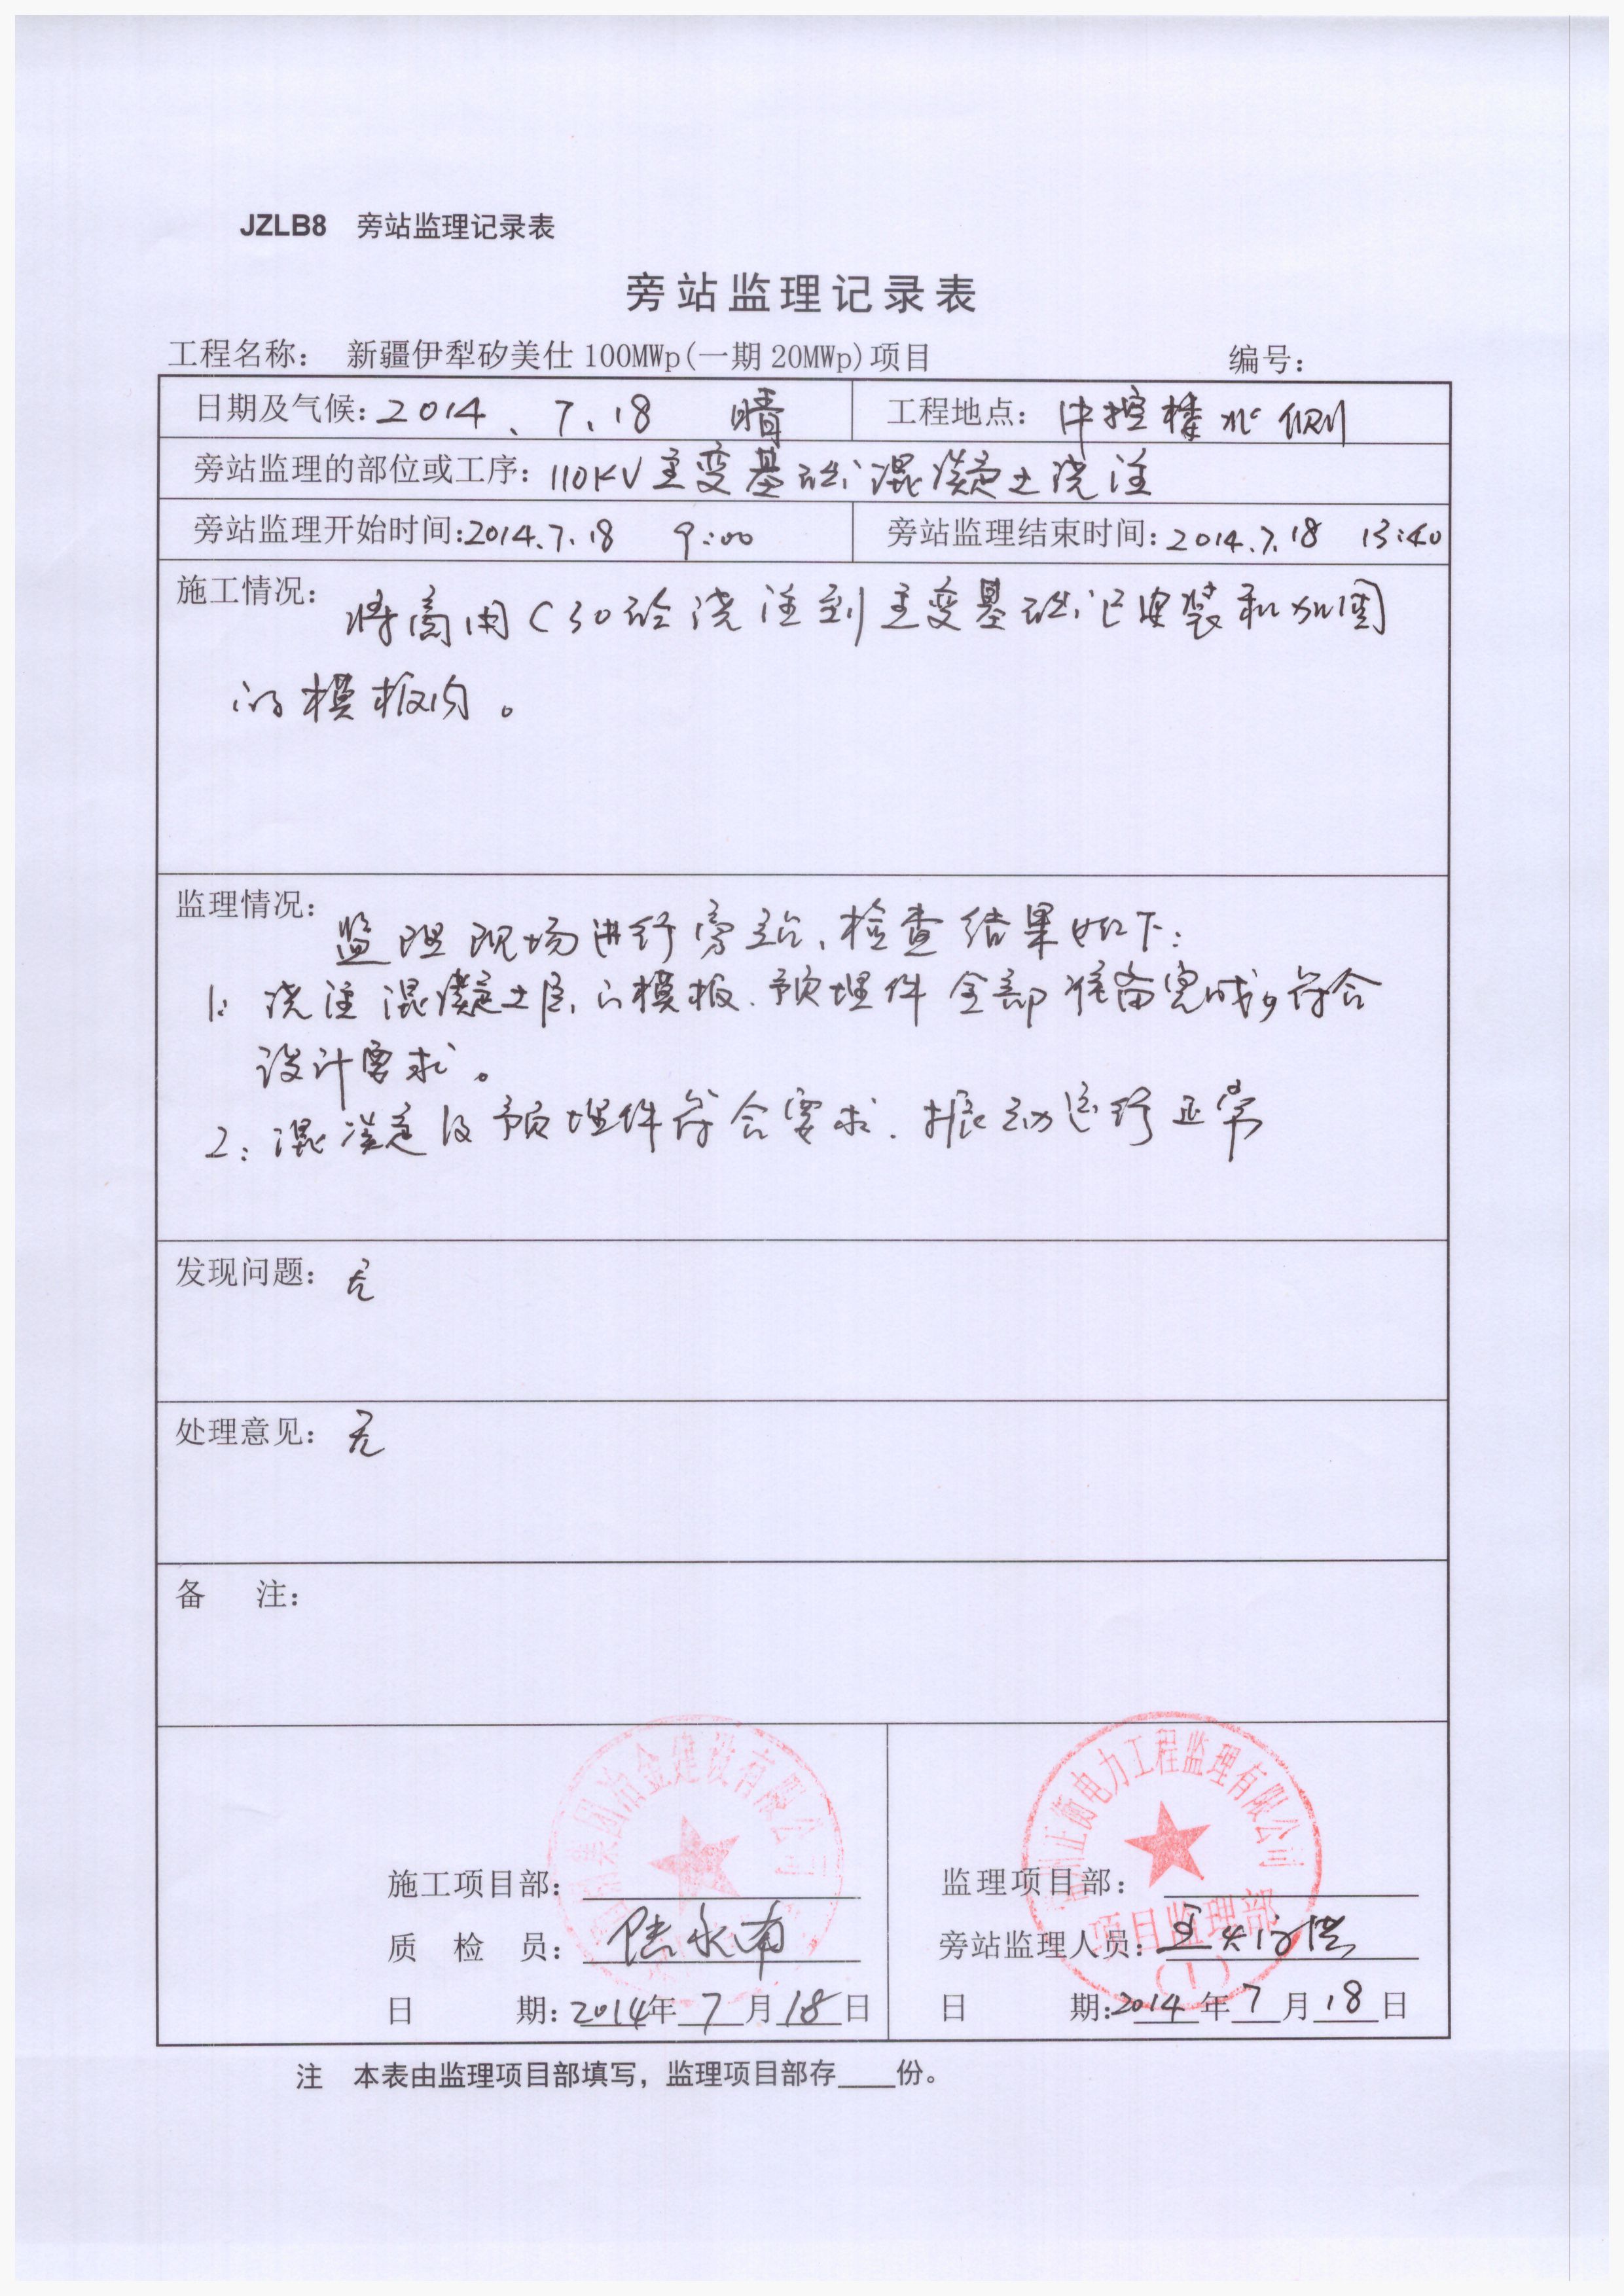 JZLB8 旁站监理记录表
旁站监理记录表
工程名称： 新疆伊犁矽美仕100MWp(一期20MWp)项目 编号：
日期及气候：2014、7、18 晴 工程地点：中控楼北侧
旁站监理的部位或工序：110KV主变基础混凝土浇注
旁站监理开始时间：2014.7.18 9:00 旁站监理结束时间：2014.7.18 13:40
施工情况：
将商用C30砼浇注到主变基础已安装和加固
的模板内。
监理情况：
监理现场进行旁站、检查结果如下：
1: 浇注混凝土 的模板、预埋件全部准备完成，符合
设计要求。
2: 混凝 及预埋件符合要求、振动运行正常
发现问题：无
处理意见：无
备 注：
集团冶金建设有限公司
正衡电力工程监理有限公司
项目监理部
(1)
施工项目部： 监理项目部：
质 检 员：陆永南 旁站监理人员：王
日 期：2014年7月18日 日 期：2014年7月18日
注 本表由监理项目部填写，监理项目部存 份。